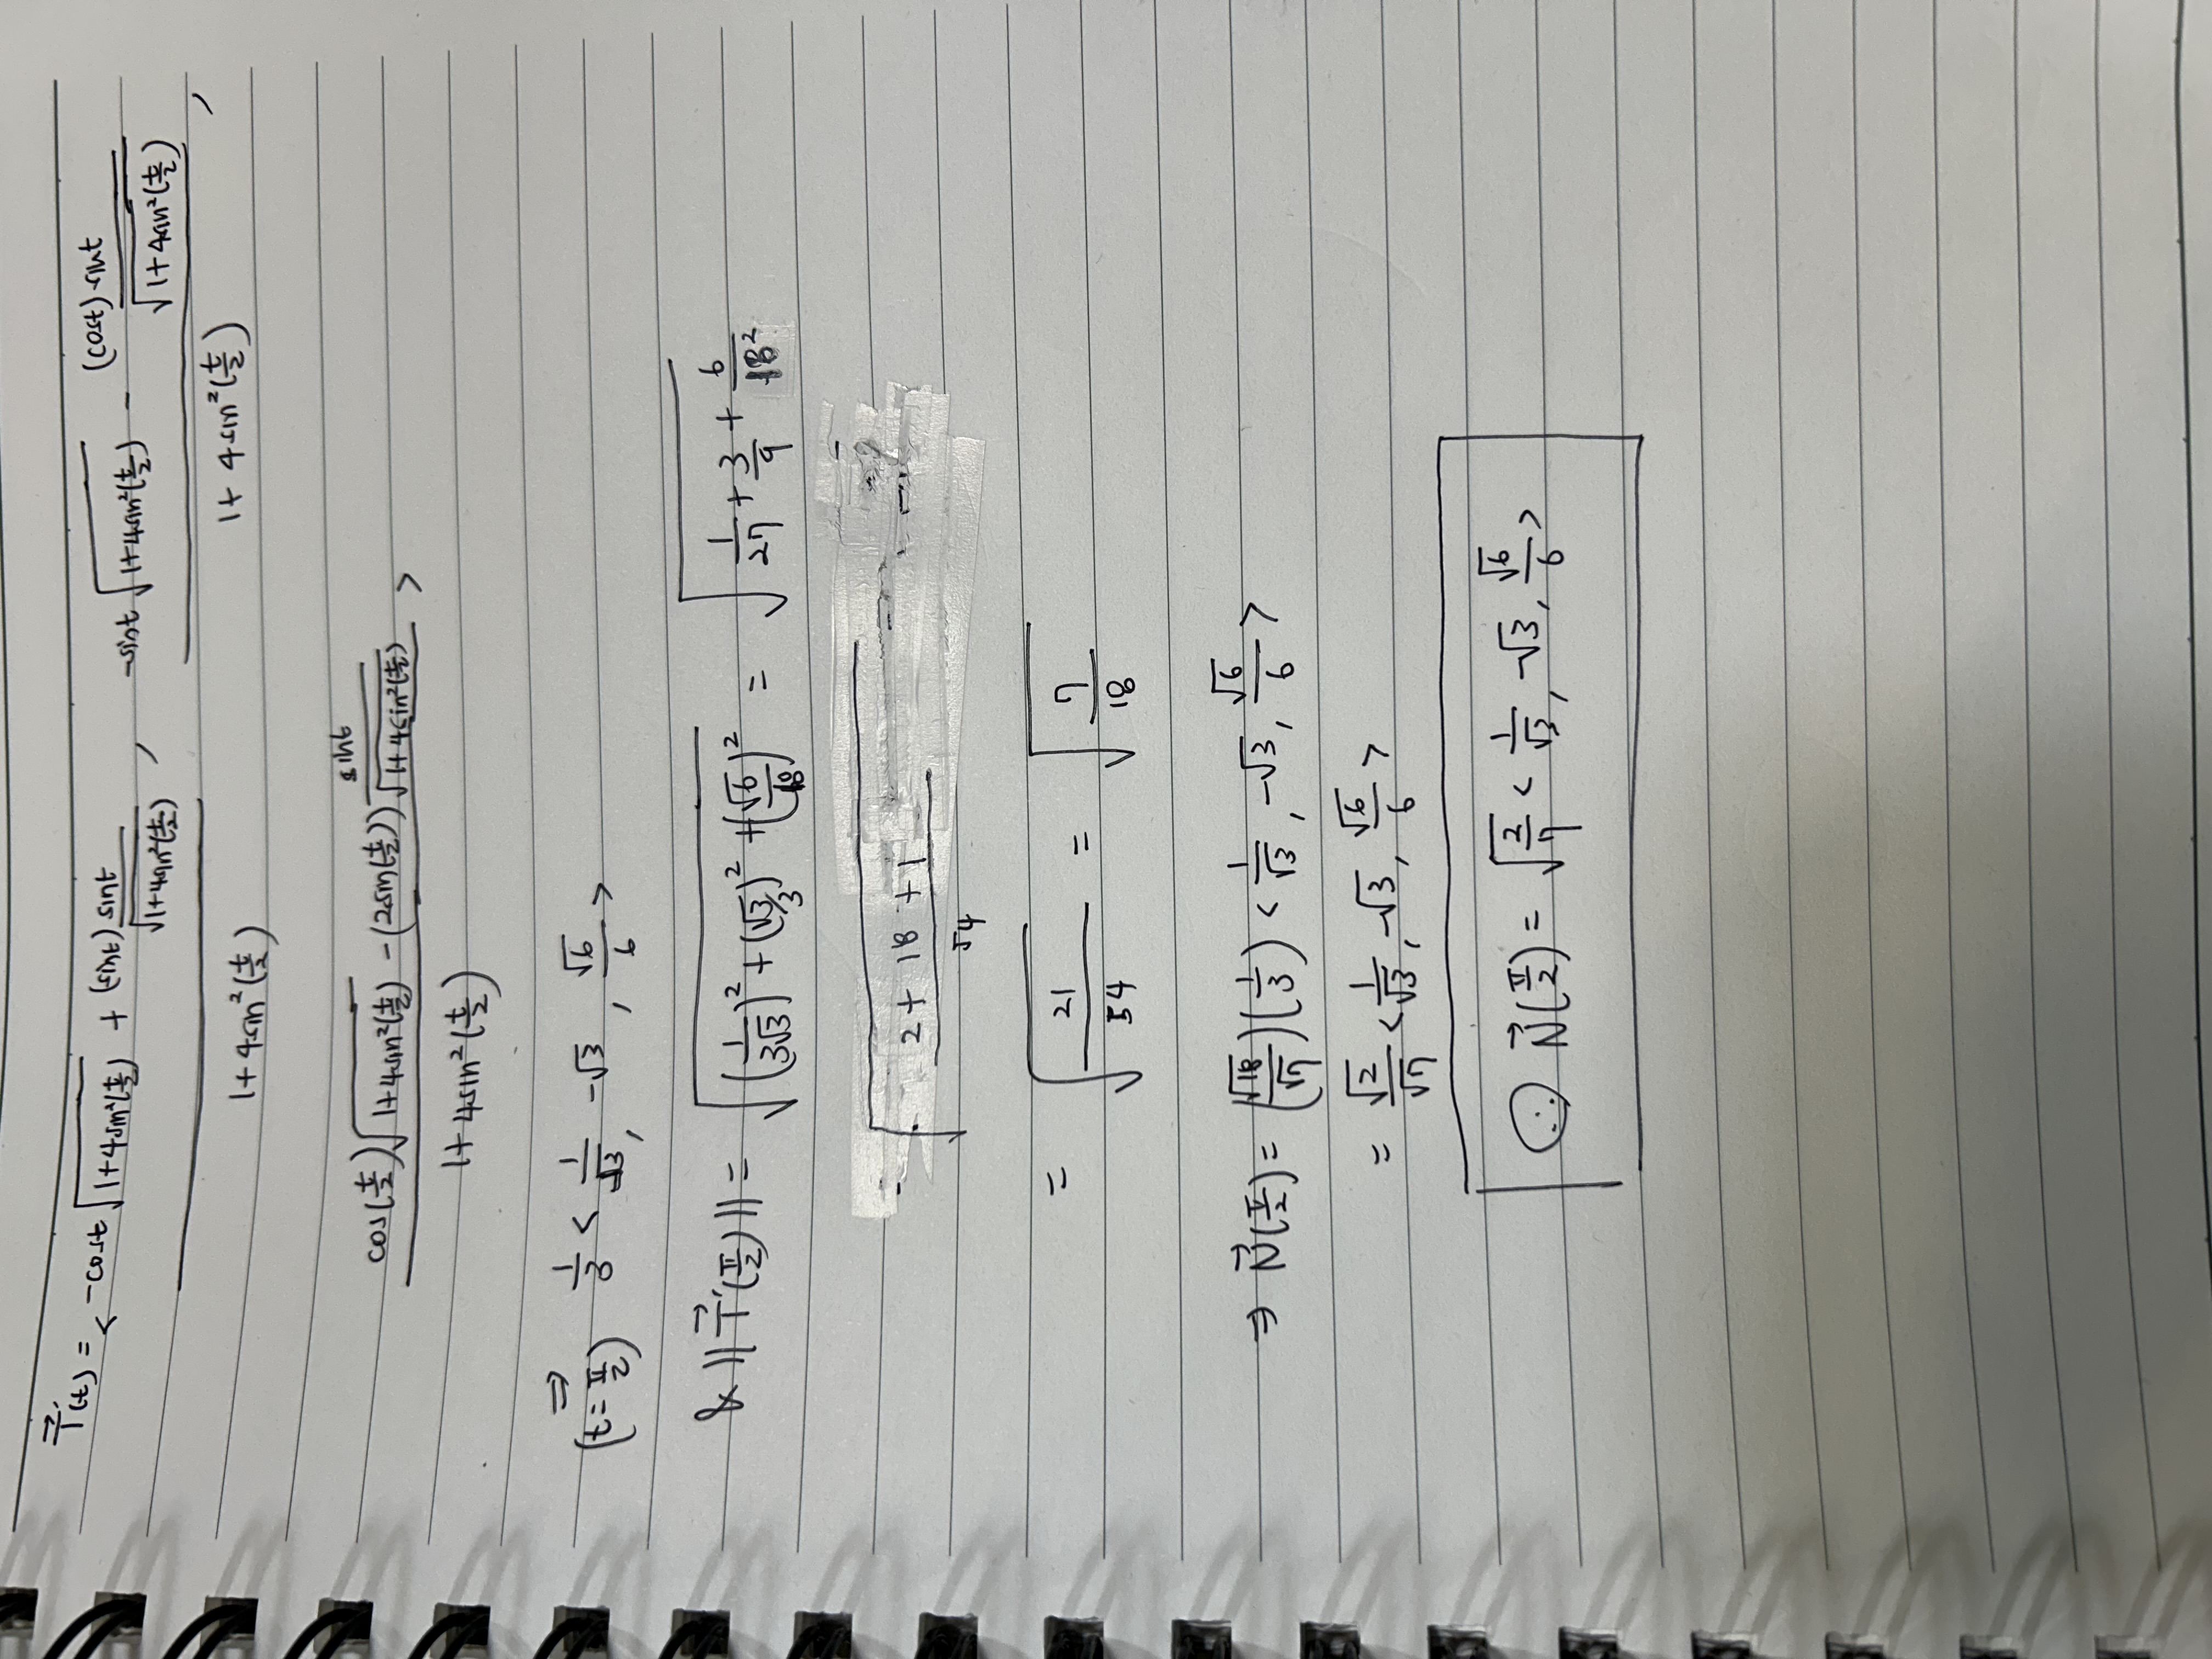 T⃗'(t) = < (-cost √(1+4sin²(t/2)) + (sint) sint/√(1+4sin²(t/2))) / (1+4sin²(t/2)) , (-sint √(1+4sin²(t/2)) - (cost)·sint/√(1+4sin²(t/2))) / (1+4sin²(t/2)) ,
(cos(t/2) √(1+4sin²(t/2)) - (2sin(t/2)) sint/√(1+4sin²(t/2))) / (1+4sin²(t/2)) >
⇒ (t=π/2) 1/3 < 1/√3, -√3, √6/6 >
& ||T⃗'(π/2)|| = √((1/3√3)² + (√3/3)² + (√6/18)²) = √(1/27 + 3/9 + 6/18²)
√((2+18+1)/54)
= √(21/54) = √(7/18)
⇒ N⃗(π/2) = (√18/√7)(1/3) < 1/√3, -√3, √6/6 >
= √2/√7 < 1/√3, -√3, √6/6 >
∴ N⃗(π/2) = √(2/7) < 1/√3, -√3, √6/6 >